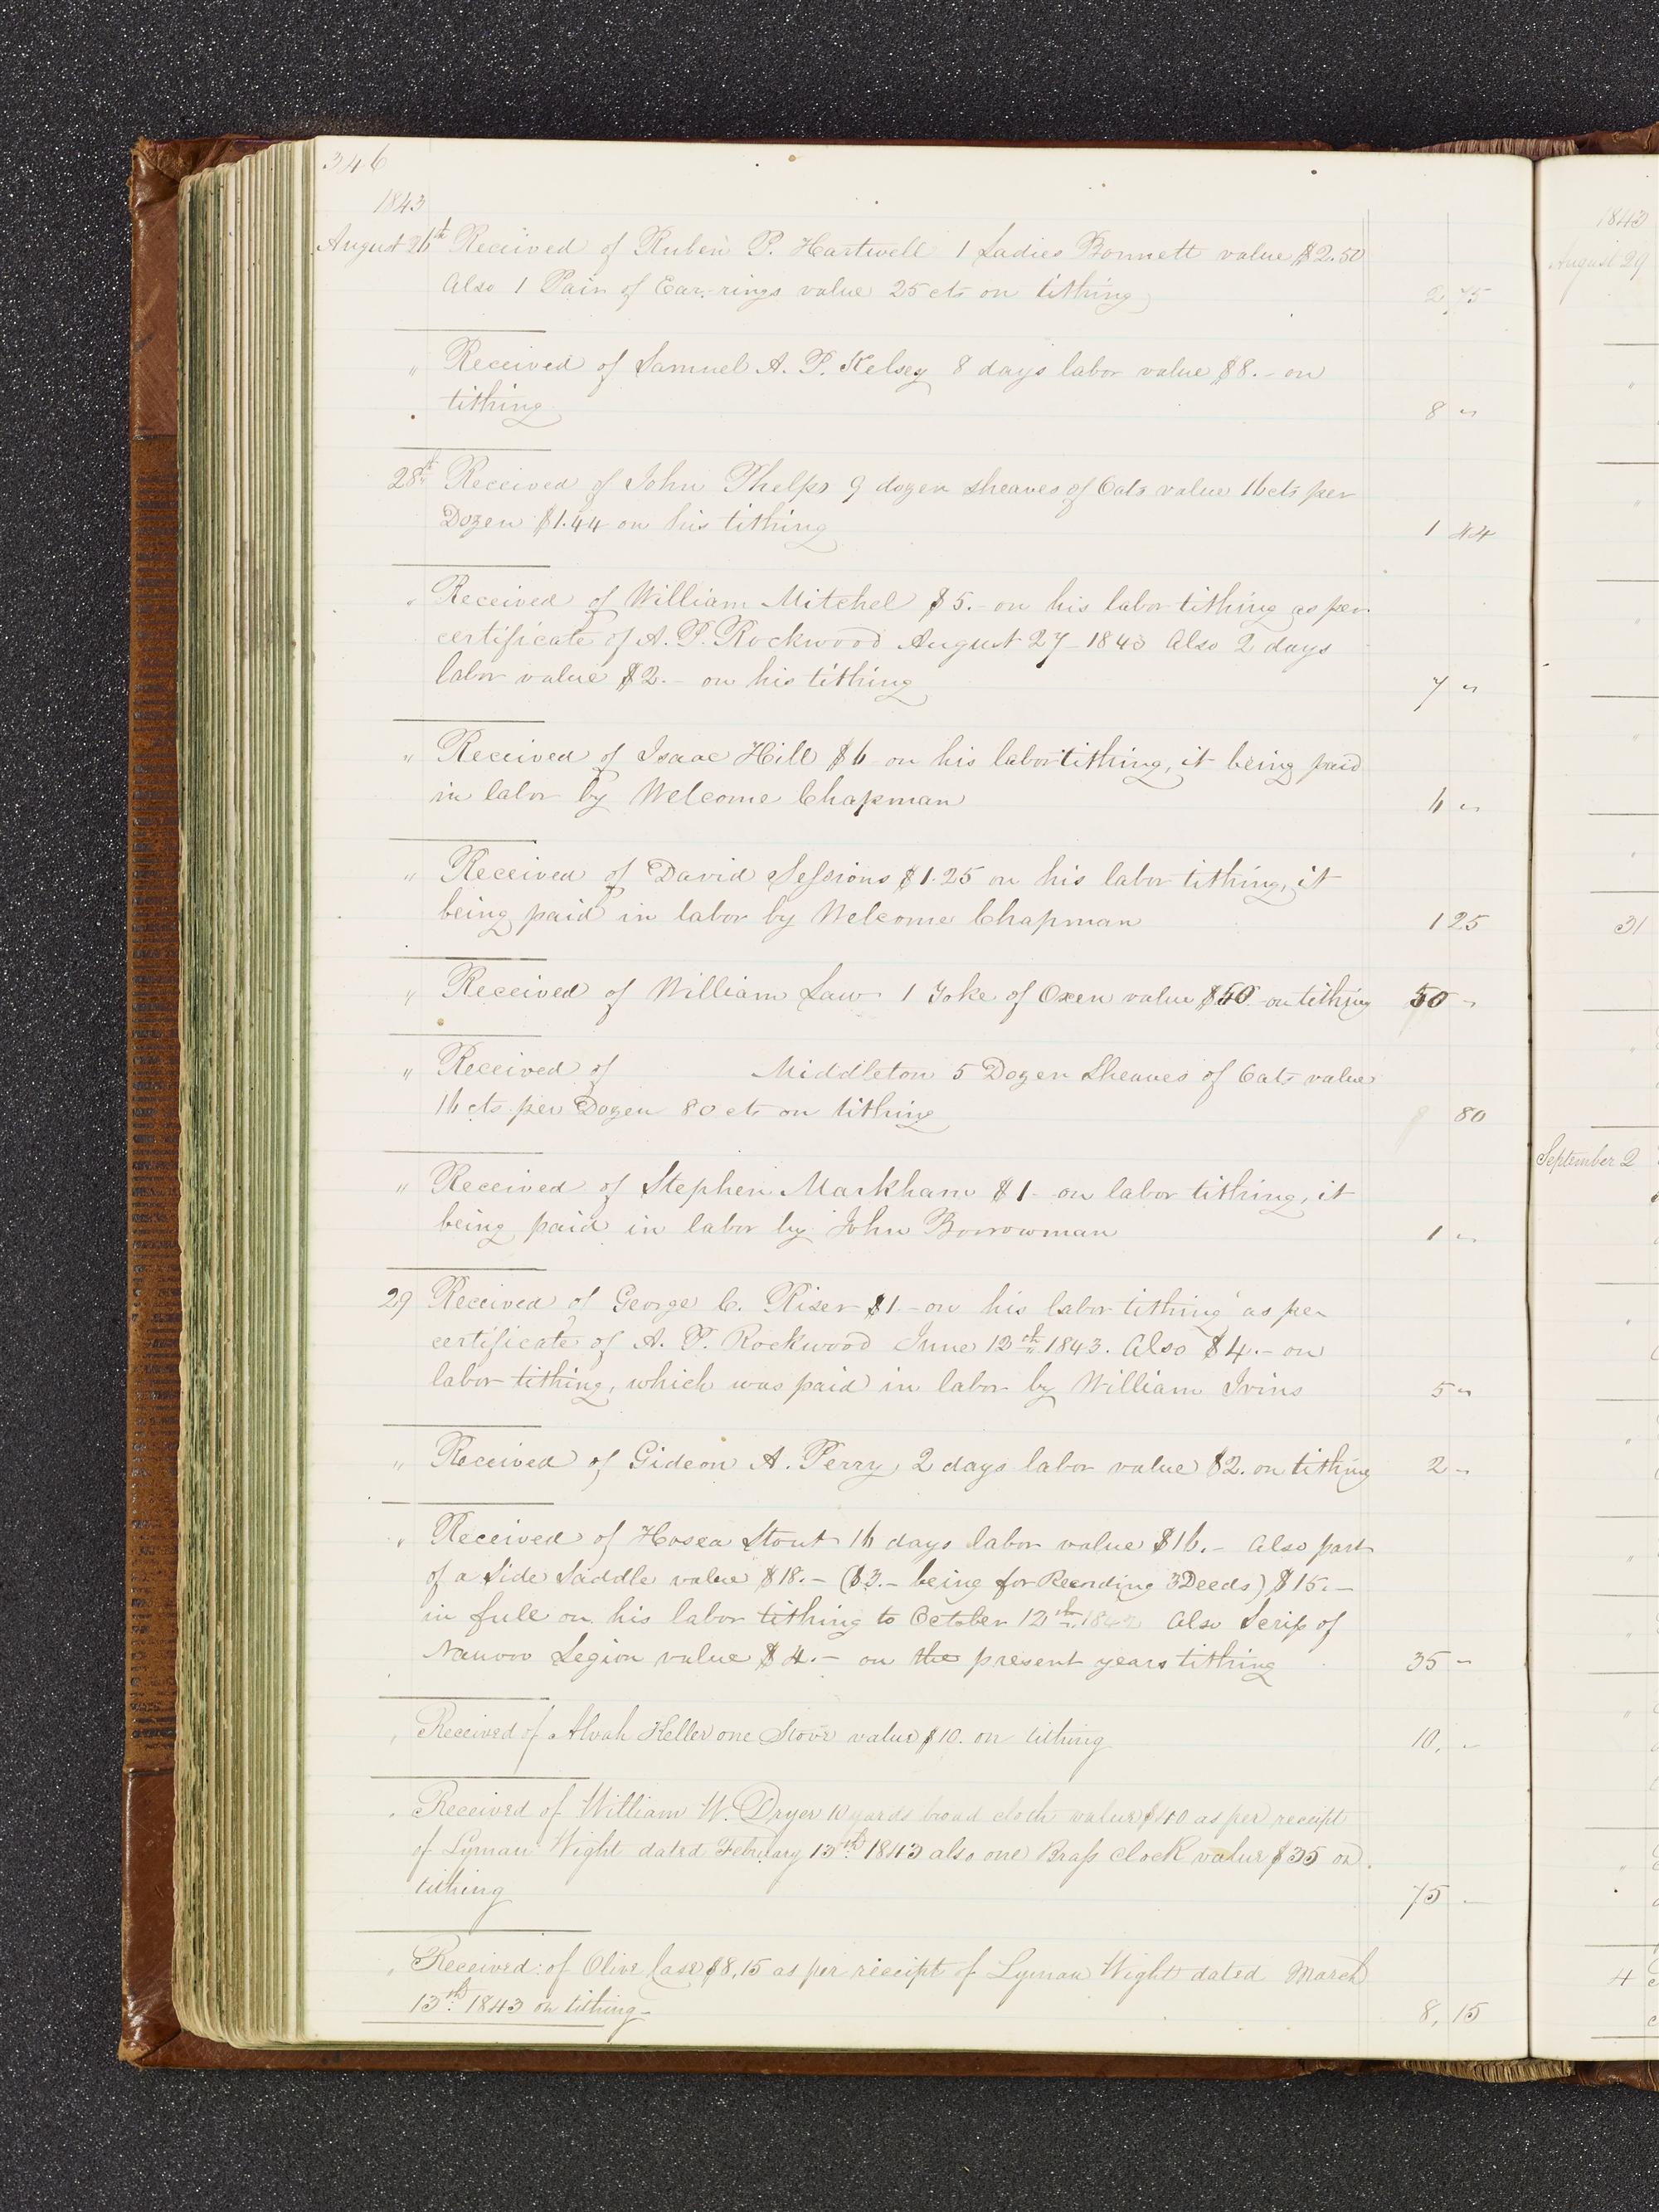 346
1843
August 26th Received of Ruben P. Hartwell 1 Ladies Bonnett value $2.50
Also 1 Pair of Ear-rings value 25 cts on tithing 2 75
" Received of Samuel A. P. Kelsey 8 days labor value $8.- on
tithing 8 "
28th Received of John Phelps 9 dozen sheaves of Oats value 16 cts per
Dozen $1.44 on his tithing 1 44
" Received of William Mitchel $5.- on his labor tithing as per
certificate of A. P. Rockwood August 27 - 1843 Also 2 days
labor value $2.- on his tithing 7 "
" Received of Isaac Hill $6 on his labor tithing, it being paid
in labor by Welcome Chapman 6 "
" Received of David Sessions $1.25 on his labor tithing, it
being paid in labor by Welcome Chapman 1 25
" Received of William Law 1 Yoke of Oxen value $50 on tithing 50 -
" Received of Middleton 5 Dozen Sheaves of Oats value
16 cts per Dozen 80 cts on tithing 80
" Received of Stephen Markham $1 - on labor tithing, it
being paid in labor by John Borrowman 1 "
29 Received of George C. Riser $1.- on his labor tithing as per
certificate of A. P. Rockwood June 12th 1843. Also $4.- on
labor tithing, which was paid in labor by William Ivins 5 "
" Received of Gideon A. Perry, 2 days labor value $2. on tithing 2 -
" Received of Hosea Stout 16 days labor value $16.- Also part
of a Side Saddle value $18.- ($3.- being for Recording 3 Deeds) $15.-
in full on his labor tithing to October 12th 1842 Also Scrip of
Nauvoo Legion value $4.- on the present years tithing 35 -
" Received of Alvah Keller one Stove value $10. on tithing 10, -
" Received of William W. Dryer 10 yards broad cloth value $40 as per receipt
of Lyman Wight dated February 13th 1843 also one Brass Clock value $35 on
tithing 75 -
" Received of Olive Case $8,15 as per receipt of Lyman Wight dated March
13th 1843 on tithing - 8, 15
1843
August 29
31
September 2
4